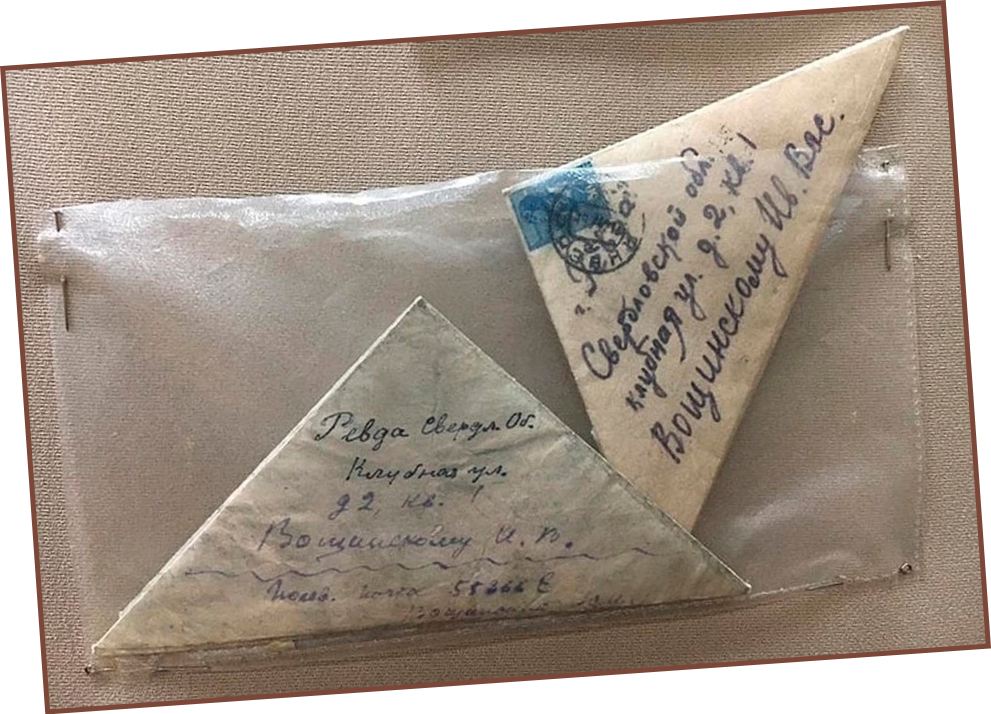 Ревда Свердл. Об.
Клубная ул.
д 2, кв. 1
Вощинскому И. В.
Полев. почта
Вощинский
г. Ревда
Свердловской обл.
клубная ул. д. 2, кв. 1
Вощинскому Ив. Вас.